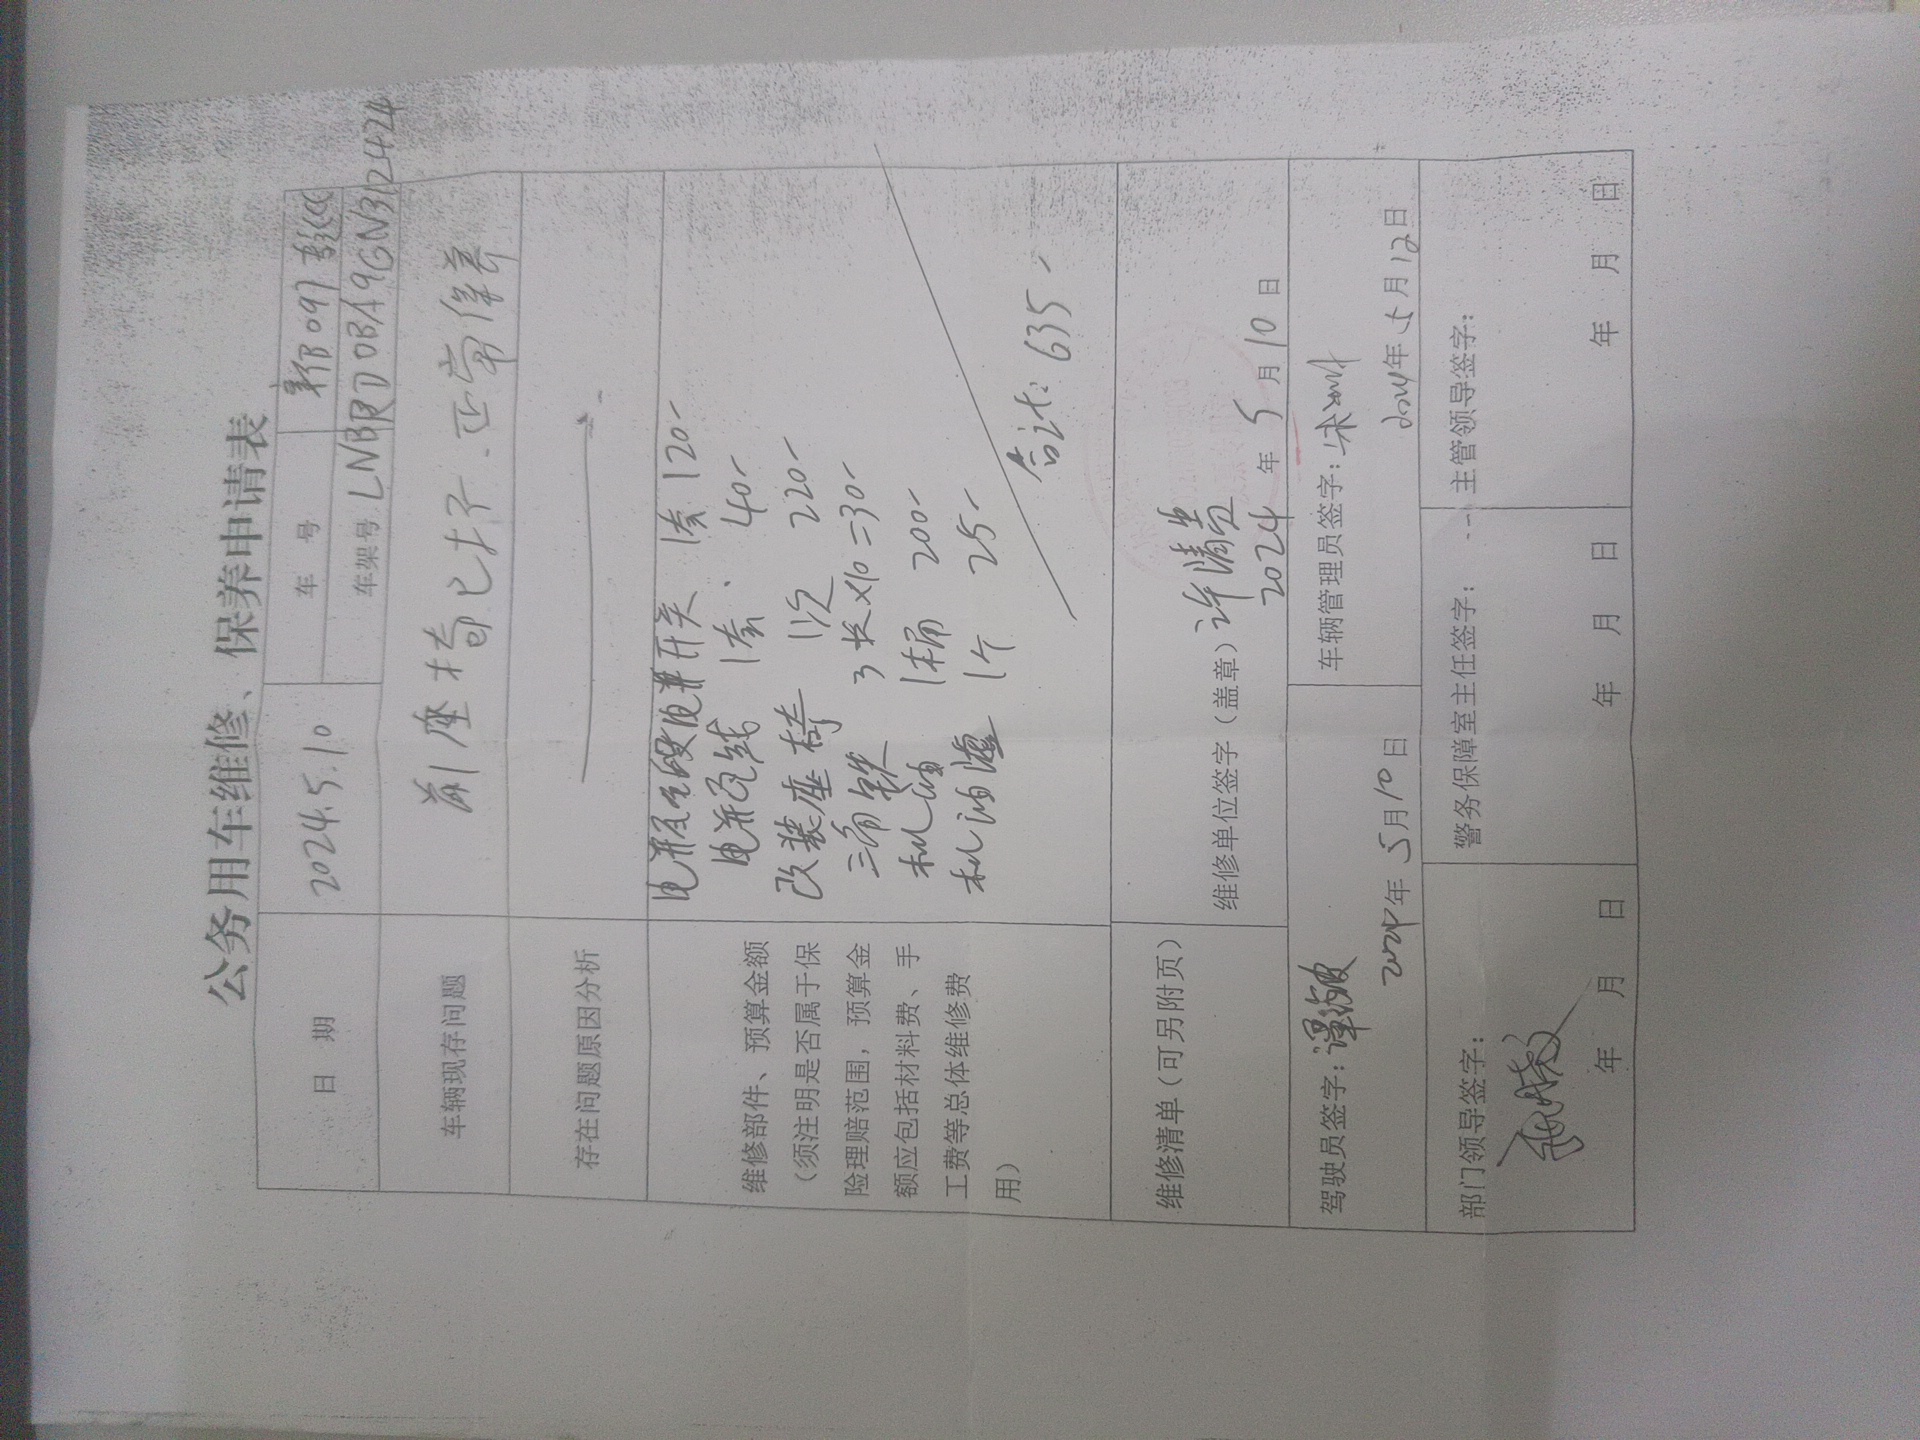 公务用车维修、保养申请表
日 期 2024.5.10 车 号 新B091
车架号 LNBRDDBA9GN312424
车辆现存问题 前座椅已坏.正常保养
存在问题原因分析
维修部件、预算金额
（须注明是否属于保
险理赔范围，预算金
额应包括材料费、手
工费等总体维修费
用）
开关 1套 120-
电瓶线 1套. 40-
改装座椅 1次 220-
三角铁 3米×10=30-
机油 1桶 200-
机油滤 1个 25-
合计: 635-
维修清单（可另附页） 维修单位签字（盖章）许清
2024年5月10日
驾驶员签字: 谭海波
2024年5月10日
车辆管理员签字:
2024年5月12日
部门领导签字:
年 月 日
警务保障室主任签字:
年 月 日
主管领导签字:
年 月 日